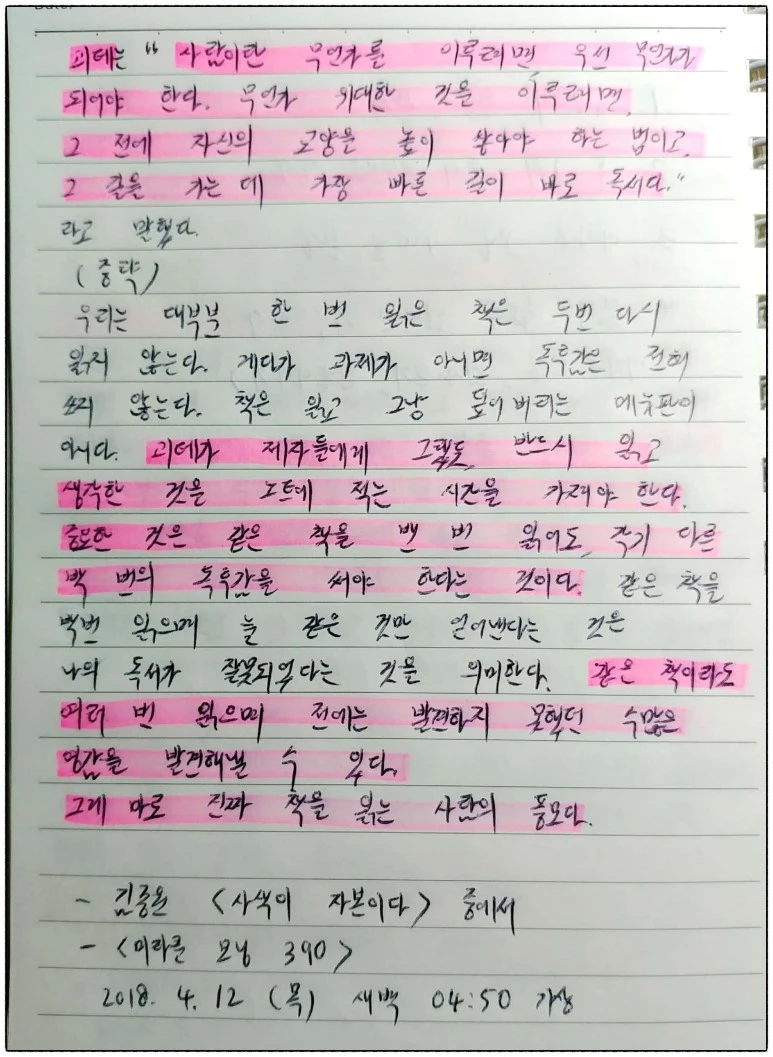 괴테는 " 사람이란 무언가를 이루려면, 우선 무언가가
되어야 한다. 무언가 위대한 것을 이루려면,
그 전에 자신의 교양을 높이 쌓아야 하는 법이고,
그 길을 가는 데 가장 빠른 길이 바로 독서다."
라고 말했다.
(중략)
우리는 대부분 한 번 읽은 책은 두번 다시
읽지 않는다. 게다가 과제가 아니면 독후감은 전혀
쓰지 않는다. 책은 읽고 그냥 덮어 버리는 메뉴판이
아니다. 괴테가 제자들에게 그랬듯, 반드시 읽고
생각한 것을 노트에 적는 시간을 가져야 한다.
중요한 것은 같은 책을 백 번 읽어도, 각기 다른
백 번의 독후감을 써야 한다는 것이다. 같은 책을
백번 읽으며 늘 같은 것만 얻어낸다는 것은
나의 독서가 잘못되었다는 것을 의미한다. 같은 책이라도
여러 번 읽으며 전에는 발견하지 못했던 수많은
영감을 발견해낼 수 있다.
그게 바로 진짜 책을 읽는 사람의 풍모다.
- 김종원 <사색이 자본이다> 중에서
- <미라클 모닝 390>
2018. 4. 12 (목) 새벽 04:50 기상